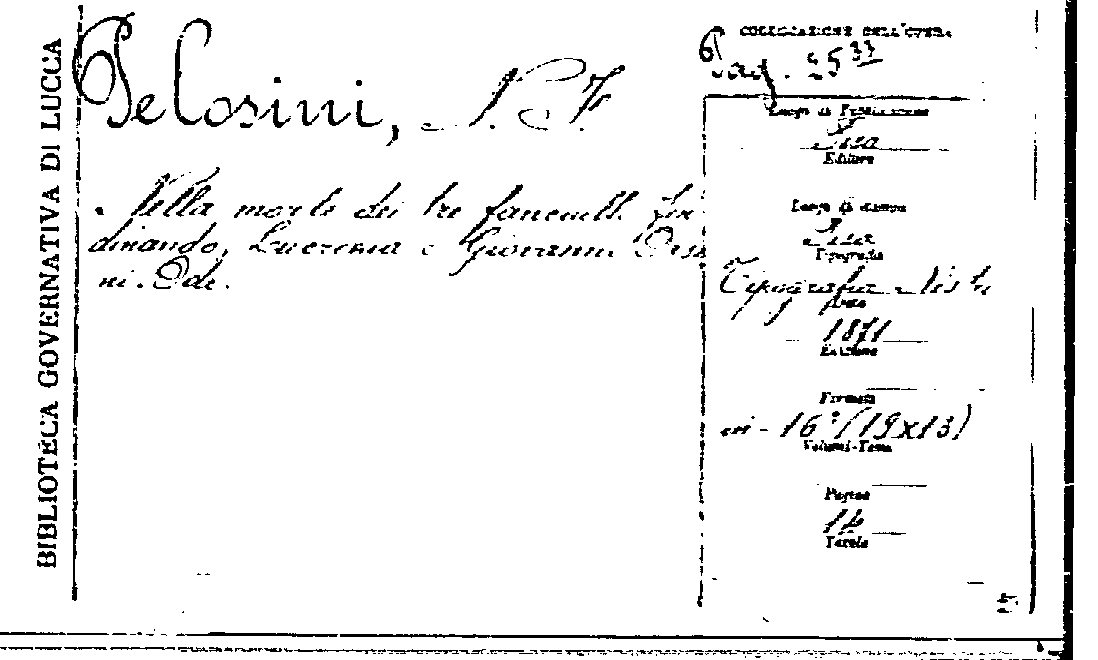 BIBLIOTECA GOVERNATIVA DI LUCCA
Pelosini, N. F.
Nella morte dei tre fanciulli Fer-
dinando, Lucrezia e Giovanni
ni. Ode.
COLLOCAZIONE DELL'OPERA
25 33
Luogo di Pubblicazione
Pisa
Editore
Luogo di stampa
Pisa
Tipografia
Tipografia Nistri
Data
1871
Edizione
Formato
in-16°(19x13)
Volumi-Tomi
Pagine
Tavole